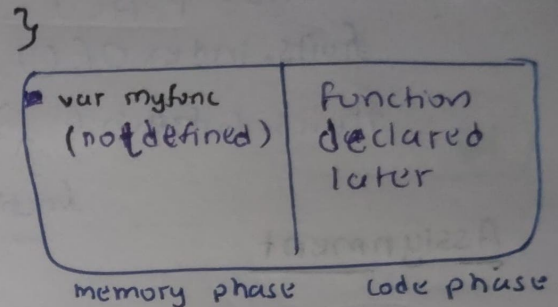 }
var myfunc
(not defined)
function
declared
later
memory phase
code phase